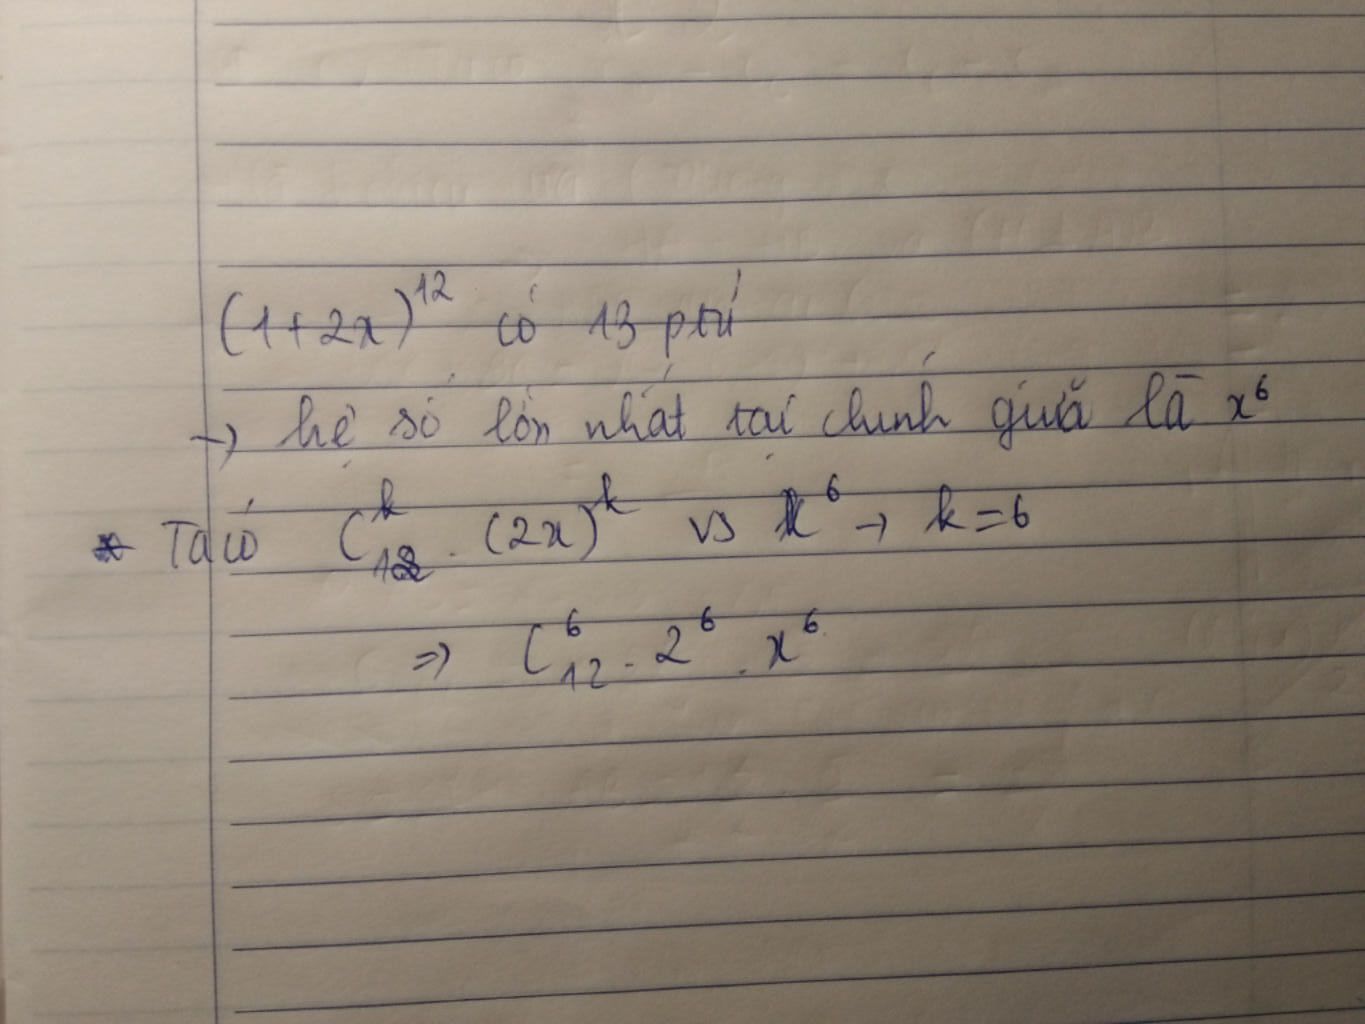 (1+2x)^12 có 13 ptử
→ hệ số lớn nhất tại chính giữa là x^6
* Ta có C_12^k . (2x)^k vs x^6 → k = 6
⇒ C_12^6 . 2^6 . x^6